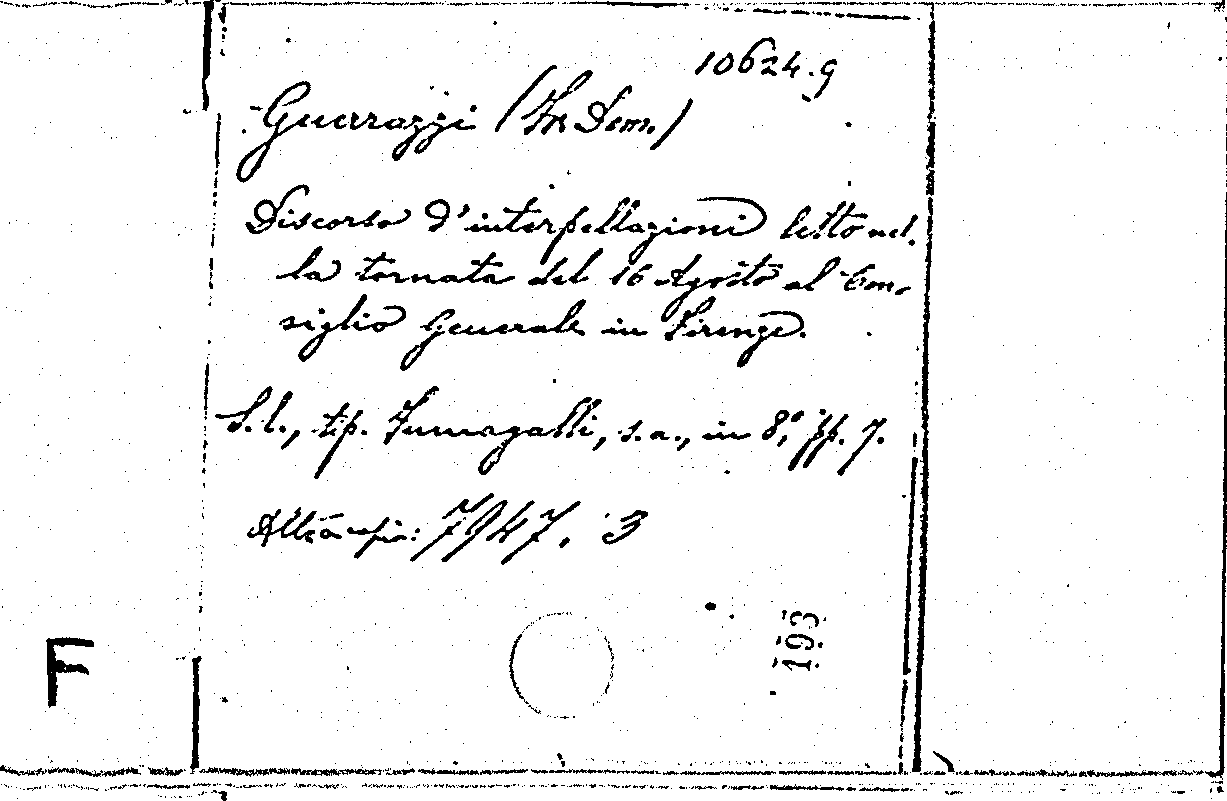 10624.9
Guerrazzi (Fr. Dom.)
Discorso d'interpellazioni letto nel-
la tornata del 16 Agosto al Con-
siglio Generale in Firenze.
S.l., tip. Fumagalli, s.a., in 8º, pp. 7.
Altra copia: 7947. 3
193
F